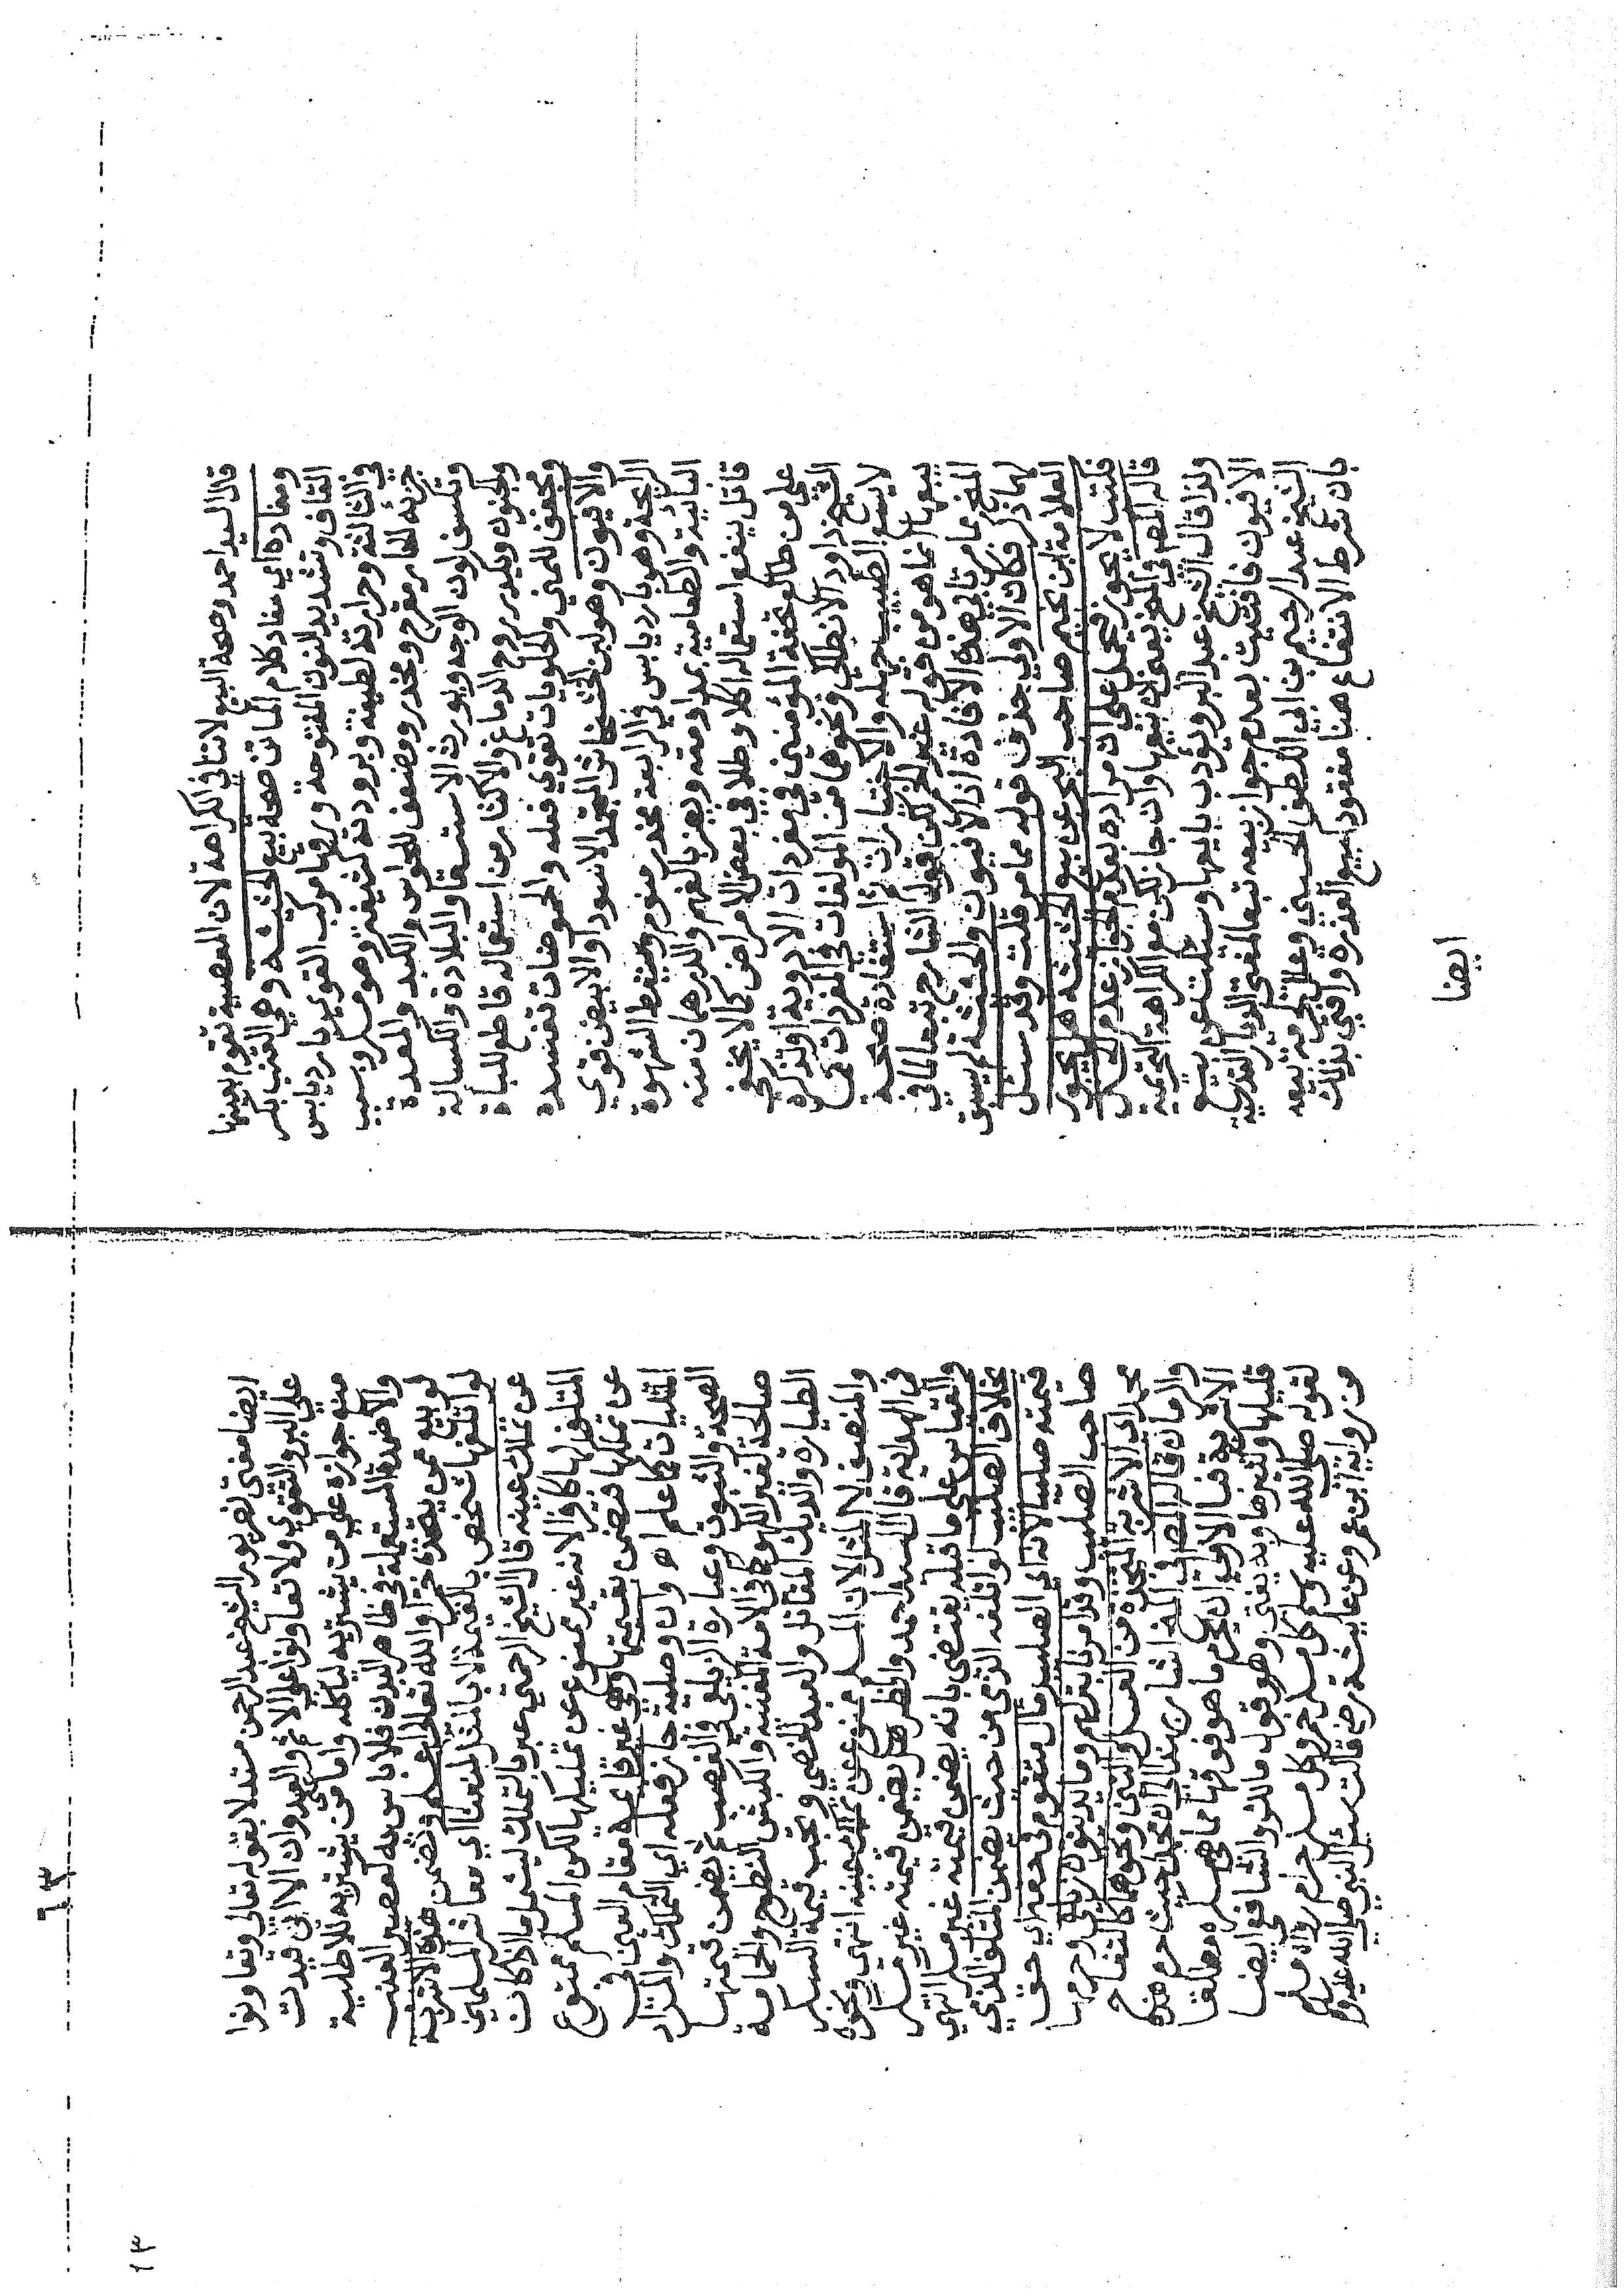 قال السيد احمد وصحة البيع لا تنافي الكراهة لان المعصية تقوم بعينها
ومفاده اي مفاد كلام الماتن صحة بيع الحشيشه وهي القنب بكسر
القاف وتشديد النون المفتوحة ورقها مركب القوي بارد يابس
في الثالثة وحرارته لطيفة وبرودته كثيفة وهو مسكر وبسبب
جزئه الحار مفرح ومخدر ومضعف للحواس والكبد والمعدة
وتكسف لون الوجه ويورث الاستسقا والبلادة والكسالة
والجنون ويكدر روح الدماغ والاكثار من استعماله قاطع للباة
ومجفف للمني والحلويات تقوي فعله والحموضات تفسده
والافيون وهو لبن الخشخاش المجمد الاسود او الابيض قوي
وهو بارد يابس في الرابعة مخدر منوم ومسقط الشهوة
والطعامية بمداومته ويضر بالفهم والدرهمان منه
قاتل ينفع استعماله اكلا وطلا في بعض الامراض كما لا يخفي
علي من طالع تحفة المؤمنين في مفردات الادوية او تذكرة
الشيخ داود الانطاكي ونحوهما من المولفات في المفردات مما
لا يسع الطبيب جهله والاختيارات ثم استفادة صحة
بيعها انما هو من قوله غير الخمر لكن قول الشارح تبعا لما في
المنح مما مر ينافي هذه الافادة اذ الافيون والحشيشة لم يسبق
لهما ذكر فكان الاولي حذف قوله مما مر قلت وقد سئل
العلامة ابن نجيم صاحب البحر عن بيع الحشيشه هل يجوز
فكتب لا يجوز فيحمل علي ان مراده بعدم الجواز عدم الحل
قاله المص في المنح يعني ان بيعها وان جاز لكن مع الكراهة التحريمية
ولذا قال الشيخ عبد البر ويؤدب بايعها وسئلت عن بيع
الافيون فافتيت بعدم جواز بيعه تبعا لمفتي الديار القدسية
الشيخ عبد الرحيم بن ابي اللطف الحسيني
بان شرط الانتفاع هنا مفقود كبيع العذرة وافتي بذلك
ايضا
ايضا مفتي الشيخ عبد الرحمن مستدلا بقوله تعالي وتعاونوا
علي البر والتقوي ولا تعاونوا علي الاثم والعدوان الا اني قيدت
منع جوازه علي من يشتريه لياكله واما من يشتريه للاطلية
والاضمدة المستعملة في ظاهر البدن فلا باس به كعصير العنب
لو بيع ممن يتخذه خمرا والله تعالي اعلم وتضمن هذه الاشربة
لو اتلفها شخص بالقيمة لا بالمثل لمنعنا اي معاشر المسلمين
عن تملك عينه قال الشيخ الرحمتي عبر بالتملك ليشمل ما اذا كان
المتلف لها كافرا لانه غير ممنوع عن تمليكها لكن المسلم ممنوع
عن تملكها فيضمن بقيمتها وهي قائمة مقام العين في
المثليات كما علم اه وان وصلية جاز فعله اي التملك والمراد
الصحة والثبوت وعبارة الزيلعي في الغصب ثم يضمن قيمتها
صالحة لغير اللهو كما في الامة المغنية والكبش النطوح والحمامة
الطيارة والديك المقاتل والعبد الخصي وتجب قيمة السكر
والمنصف لا المثل لان المسلم ممنوع عن تملك عينه انتهي ونحوه
في الهداية قال السيد احمد وانظر هل يضمن قيمته غير مسكر
والقياس علي ما قبله يقتضي بانه يضمن قيمته غير مسكر انتهي
بخلاف الصليب لو اتلفه الذي من حيث يضمن المتلف الذي
قيمته صليبا لانه اي الصليب مال متقوم في حقه اي حق
صاحب الصليب وقد امرنا بتركهم وما يدينون زيلعي وحرمها
محمد اي الاشربة المتخذة من العسل والتين ونحوهما كالتفاح
والرمان قاله المص في المنح اشار بهذا الي ان محل حيث حرم هذه
الاشربة فبالاولي ان يحرم ما هو فوقها مما هي مسكره مطلقا
قليلها وكثيرها وبه يفتي وهو قول مالك والشافعي ايضا
لقوله صلي الله عليه وسلم كل مسكر خمر وكل مسكر حرام رواه مسلم
من رواية ابن عمر وعن عايشة رضي قالت سئل النبي صلي الله عليه وسلم
٦٣